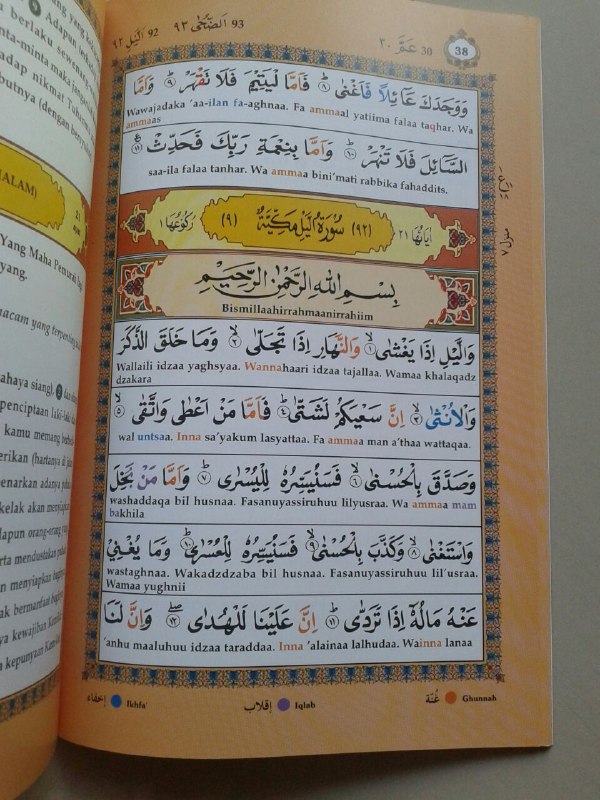 93 اَلضُّحٰى ٩٣
92 اَلَّيْلِ ٩٢
30 عَمَّ ٣٠
38
وَوَجَدَكَ عَآئِلًا فَاَغْنٰىۗ ٨ فَاَمَّا الْيَتِيْمَ فَلَا تَقْهَرْۗ ٩ وَاَمَّا
Wawajadaka 'aa-ilan fa-aghnaa. Fa ammaal yatiima falaa taqhar. Wa
ammaas
السَّآئِلَ فَلَا تَنْهَرْۗ ١٠ وَاَمَّا بِنِعْمَةِ رَبِّكَ فَحَدِّثْ ١١
saa-ila falaa tanhar. Wa ammaa bini'mati rabbika fahaddits.
اٰيَاتُهَا ٢١
(٩٢) سُوْرَةُ الَّيْلِ مَكِّيَّةٌ (٩)
رُكُوْعُهَا ١
منزل ٧
بِسْمِ اللّٰهِ الرَّحْمٰنِ الرَّحِيْمِ
Bismillaahirrahmaanirrahiim
وَالَّيْلِ اِذَا يَغْشٰىۙ ١ وَالنَّهَارِ اِذَا تَجَلّٰىۙ ٢ وَمَا خَلَقَ الذَّكَرَ
Wallaili idzaa yaghsyaa. Wannahaari idzaa tajallaa. Wamaa khalaqadz
dzakara
وَالْاُنْثٰىۙ ٣ اِنَّ سَعْيَكُمْ لَشَتّٰىۗ ٤ فَاَمَّا مَنْ اَعْطٰى وَاتَّقٰىۙ ٥
wal untsaa. Inna sa'yakum lasyattaa. Fa ammaa man a'thaa wattaqaa.
وَصَدَّقَ بِالْحُسْنٰىۙ ٦ فَسَنُيَسِّرُهٗ لِلْيُسْرٰىۗ ٧ وَاَمَّا مَنْۢ بَخِلَ
washaddaqa bil husnaa. Fasanuyassiruhuu lilyusraa. Wa ammaa mam
bakhila
وَاسْتَغْنٰىۙ ٨ وَكَذَّبَ بِالْحُسْنٰىۙ ٩ فَسَنُيَسِّرُهٗ لِلْعُسْرٰىۗ ١٠ وَمَا يُغْنِيْ
wastaghnaa. Wakadzdzaba bil husnaa. Fasanuyassiruhuu lil'usraa.
Wamaa yughnii
عَنْهُ مَالُهٗٓ اِذَا تَرَدّٰىۗ ١١ اِنَّ عَلَيْنَا لَلْهُدٰىۖ ١٢ وَاِنَّ لَنَا
'anhu maaluhuu idzaa taraddaa. Inna 'alainaa lalhudaa. Wainna lanaa
إخفاء Ikhfa'
إقلاب Iqlab
غُنَّة Ghunnah
Adapun
berlaku sewenang
nta-minta maka jangan
adap nikmat Tuhan
butnya (dengan bersyuk
ALAM)
21
Yang Maha Pemurah lagi
yang.
macam yang terpenting
ahaya siang),
penciptaan laki-laki d
kamu memang berb
erikan (hartanya di jal
enarkan adanya pahala
kelak akan menyiap
dapun orang-orang
rta mendustakan paha
n menyiapkan bagin
ak bermanfaat bagi
ya kewajiban Kami
a kepunyaan Kami